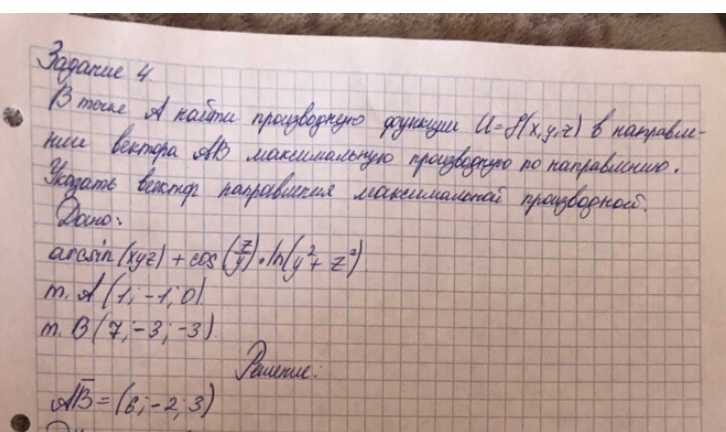 Задание 4
В точке А найти производную функции U=f(x,y,z) в направле-
нии вектора АВ максимальную производную по направлению.
Указать вектор направления максимальной производной.
Дано:
arcsin(xyz) + cos(z/y)·ln(y²+z²)
т. А(1; -1; 0)
т. В(7; -3; -3)
Решение:
AB̅ = (6; -2; 3)